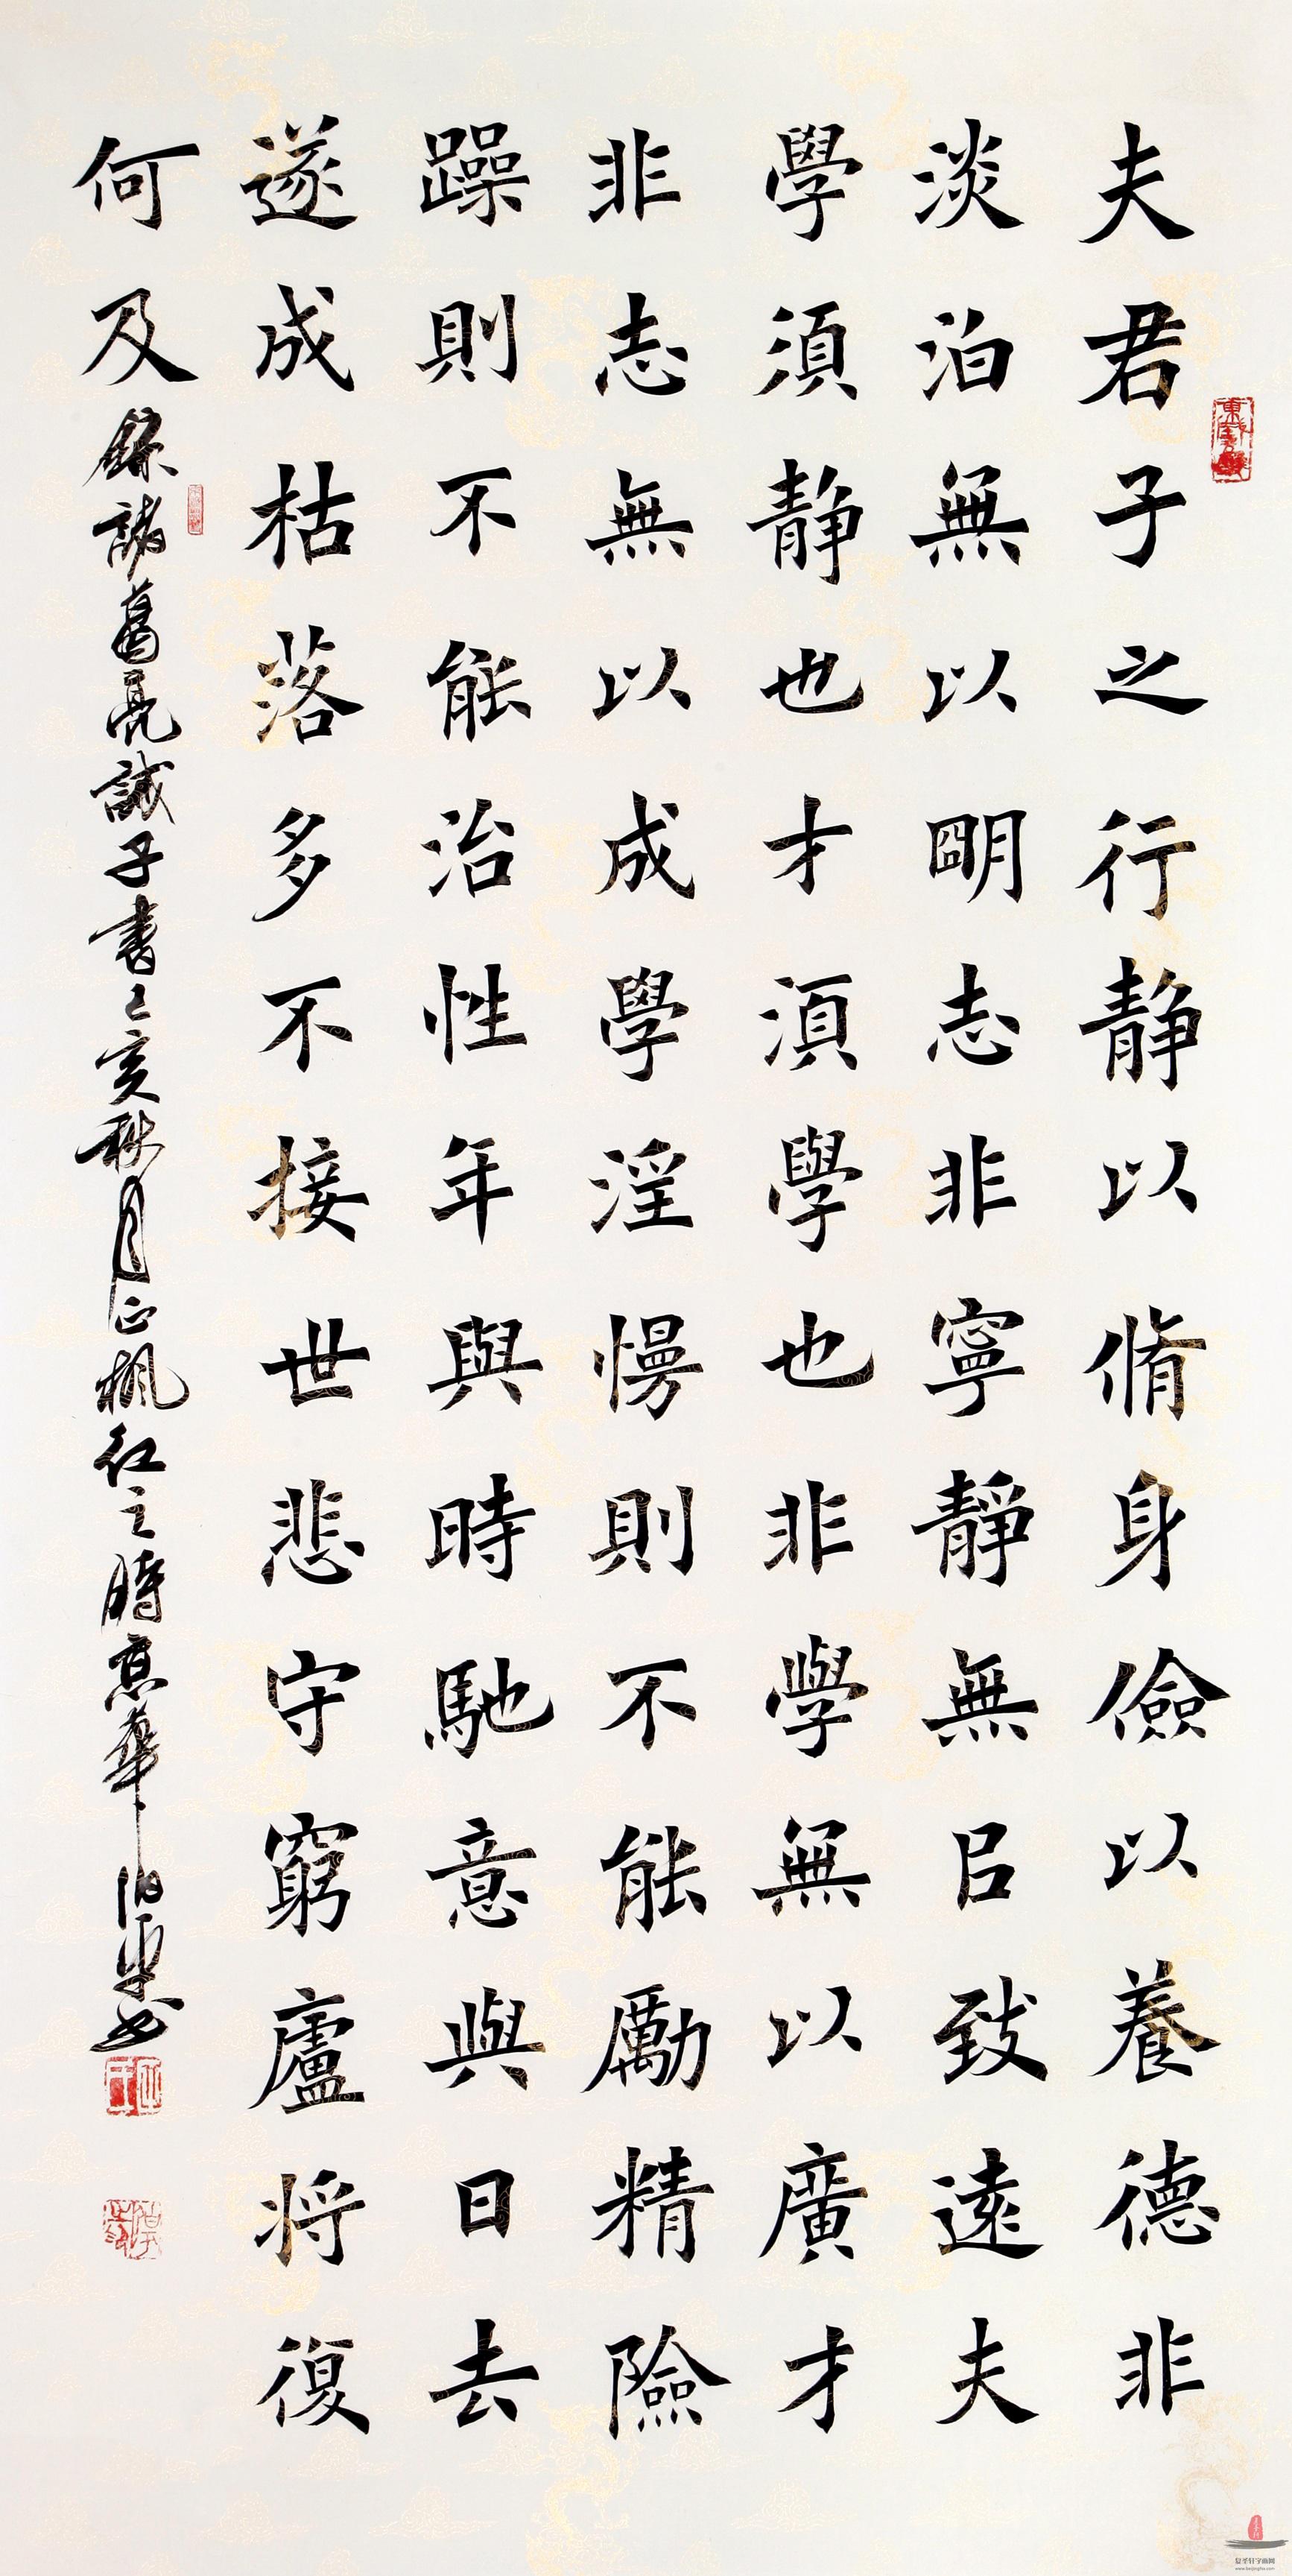 夫君子之行靜以脩身儉以養德非
淡泊無以朙志非寧靜無㠯致遠夫
學須靜也才須學也非學無以廣才
非志無以成學淫慢則不能勵精險
躁則不能治性年與時馳意與日去
遂成枯落多不接世悲守窮廬將復
何及 錄諸葛亮誡子書己亥秋月正楓紅之時京華
www.baojingfw.com